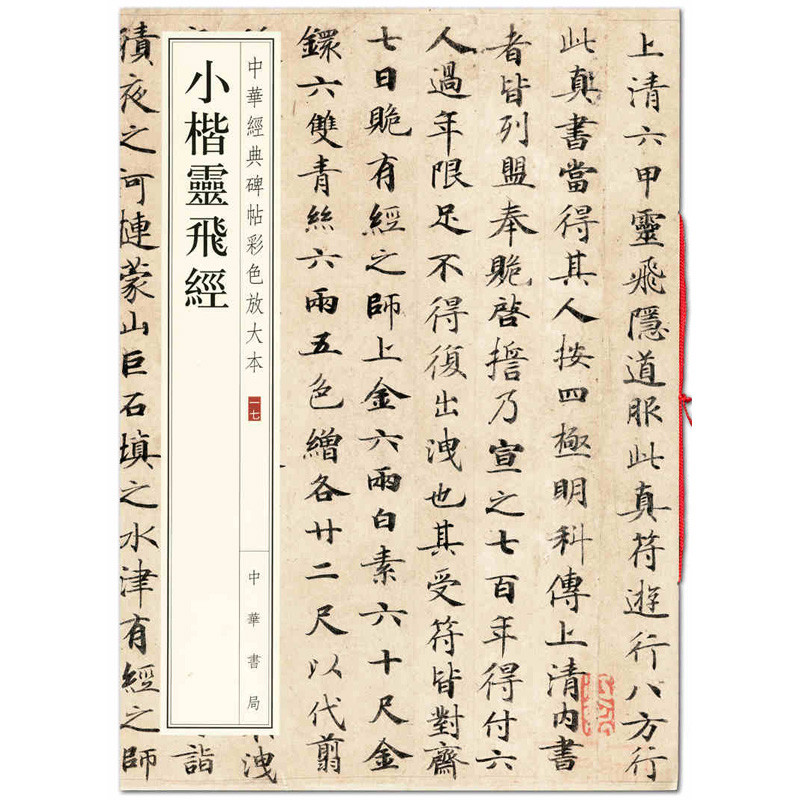 上清六甲靈飛隱道服此真符遊行八方行
此真書當得其人按四極明科傳上清內書
者皆列盟奉贍啓誓乃宣之七百年得付六
人過年限足不得復出洩也其受符皆對齋
七日贍有經之師上金六兩白素六十尺金
鐶六雙青絲六兩五色繒各廿二尺以代翦
中華經典碑帖彩色放大本
一七
中華書局
小楷靈飛經
洩
詣
績夜之河梿蒙山巨石填之水津有經之師